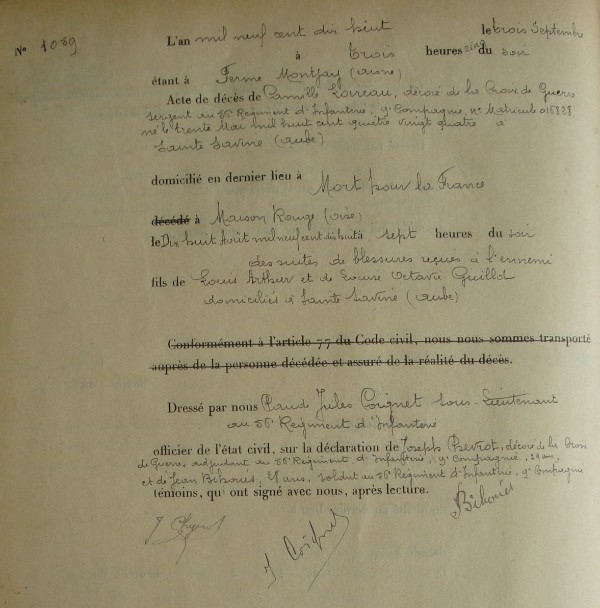 No 1089
L'an mil neuf cent dix huit le trois Septembre
à trois heures cinq du soir
étant à Ferme Montjay (Aisne)
Acte de décès de Camille Loireau, décoré de la Croix de Guerre
sergent au 56e Régiment d'Infanterie, 9e Compagnie, No Matricule 015828
né le trente Mai mil huit cent quatre vingt quatre à
Sainte Savine (Aube)
domicilié en dernier lieu à
Mort pour la France
décédé à Maison Rouge (Oise)
le Dix huit Août mil neuf cent dix huit à sept heures du soir
des suites de blessures reçues à l'ennemi
fils de Louis Arthur et de Louise Octavie Guillot
domiciliés à Sainte Savine (Aube)
Conformément à l'article 77 du Code civil, nous nous sommes transporté
auprès de la personne décédée et assuré de la réalité du décès.
Dressé par nous Claude Jules Coignet Sous-Lieutenant
au 56e Régiment d'Infanterie
officier de l'état civil, sur la déclaration de Joseph décoré de la Croix
de Guerre, adjudant au 56e Régiment d'Infanterie, 9e Compagnie, ans,
et de Jean ans, soldat au 56e Régiment d'Infanterie, 9e Compagnie
témoins, qui ont signé avec nous, après lecture.
J. Coignet